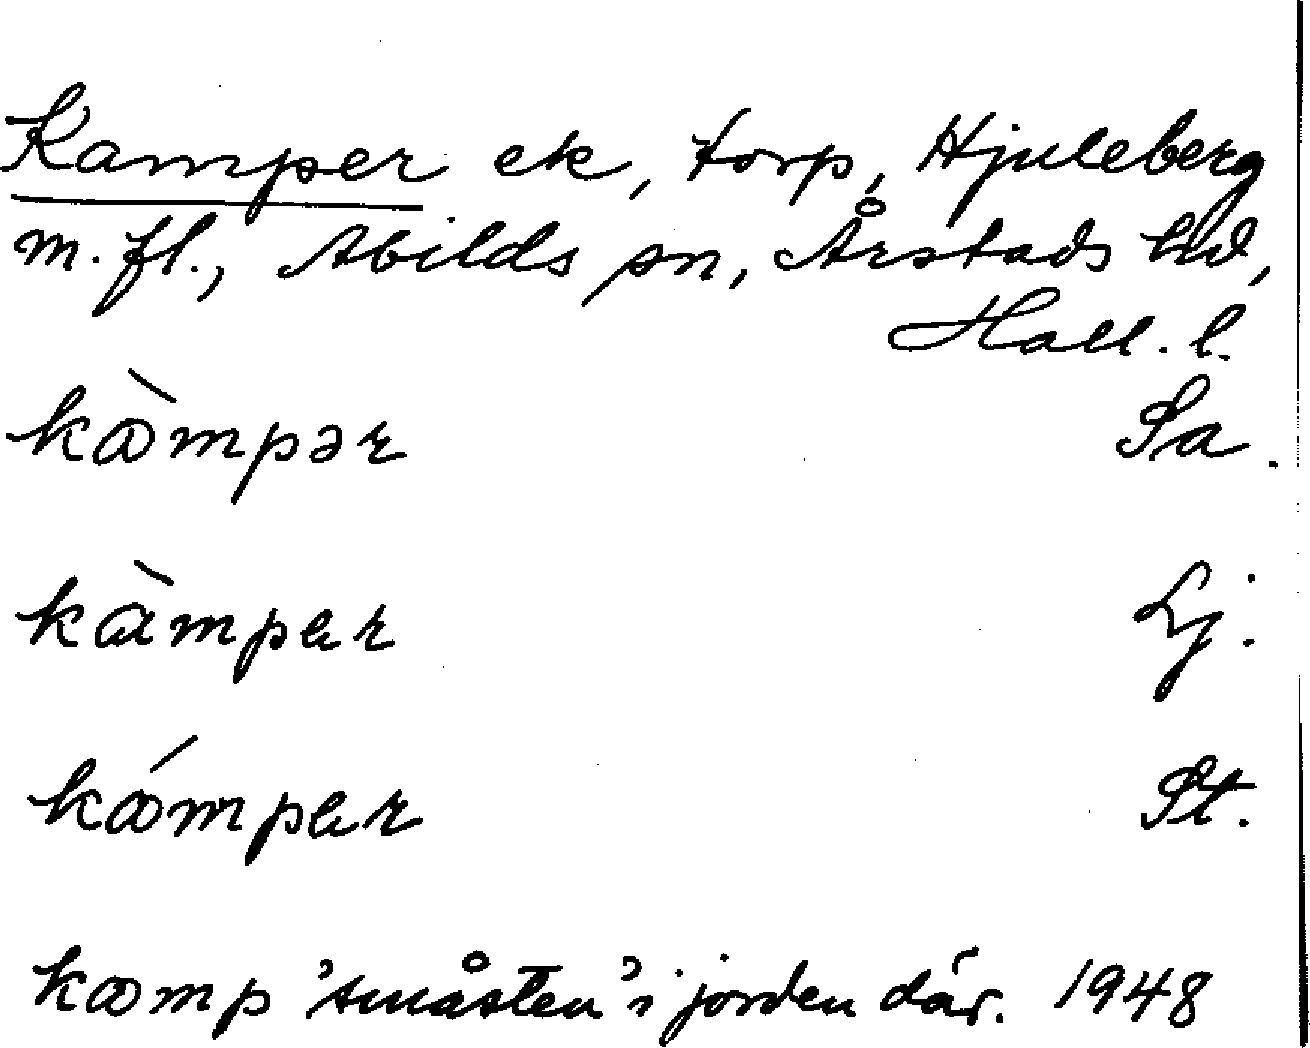 Kamper ek, torp, Hjuleberg
m. fl., Abilds sn, Årstads hd,
Hall. l.
kàmpər Sa.
kàmpar Lj.
kámpar St.
kamp 'småsten' i jorden där. 1948